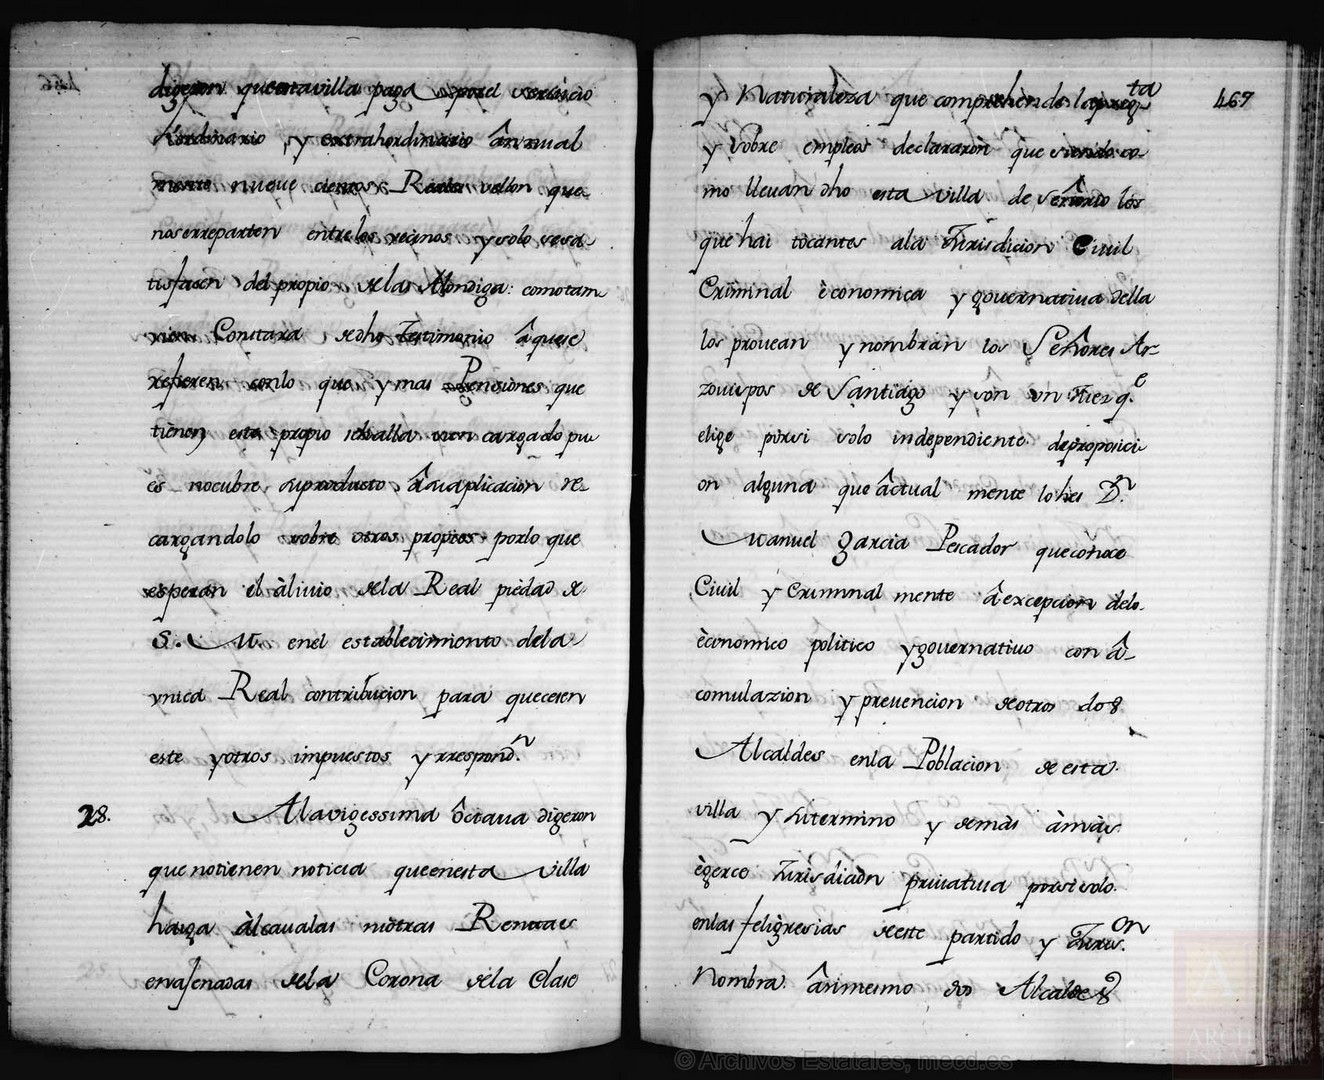 digeron questavilla paga por el servicio
hordinario y extrahordinario ânnual
mente nueve cientos Reales vellon que
nose rreparten entrelos vecinos y solo se sa-
tisfacen del propio dela Alondiga: como tam
vien Constara de dho Testimonio âquese
refieren conlo que y mas Pensiones que
tienen este propio se halla vien cargado pu
es nocubre suproducto âsu aplicacion re-
cargandolo sobre otros propios porlo que
esperan el àlivio dela Real piedad de
S. M. enel establecimiento dela
ynica Real contribucion para quecesen
este yotros impuestos y rrespond.n
28. Alavigessima ôctava digeron
que notienen noticia queenesta villa
haiga àlcavalas niòtras Rentas
enajenadas dela Corona dela Clase
467
y Naturaleza que comprehende la preg.ta
y sobre empleos declararon que siendo co-
mo llevan dho esta villa de señorio los
que hai tocantes ala Jurisdicion Civil
Criminal èconomica y governativa della
los provean y nombran los Señores Ar-
zovispos de Santiago y son un Juez q.e
elige porsi solo independiente deproposici
on alguna que âctual mente lo hes D.n
Manuel Garcia Pescador queconoce
Civil y Criminal mente âexcepcion delo
èconomico politico ygovernativo con â-
comulazion y prevencion deotros dos
Alcaldes enla Poblacion de esta
villa y sutermino y demàs àmàs
ègerce Jurisdicion privativa porsisolo
enlas feligresias deeste partido y Juris.on
Nombra âsimesmo dos Alcaldes
© Archivos Estatales, mecd.es